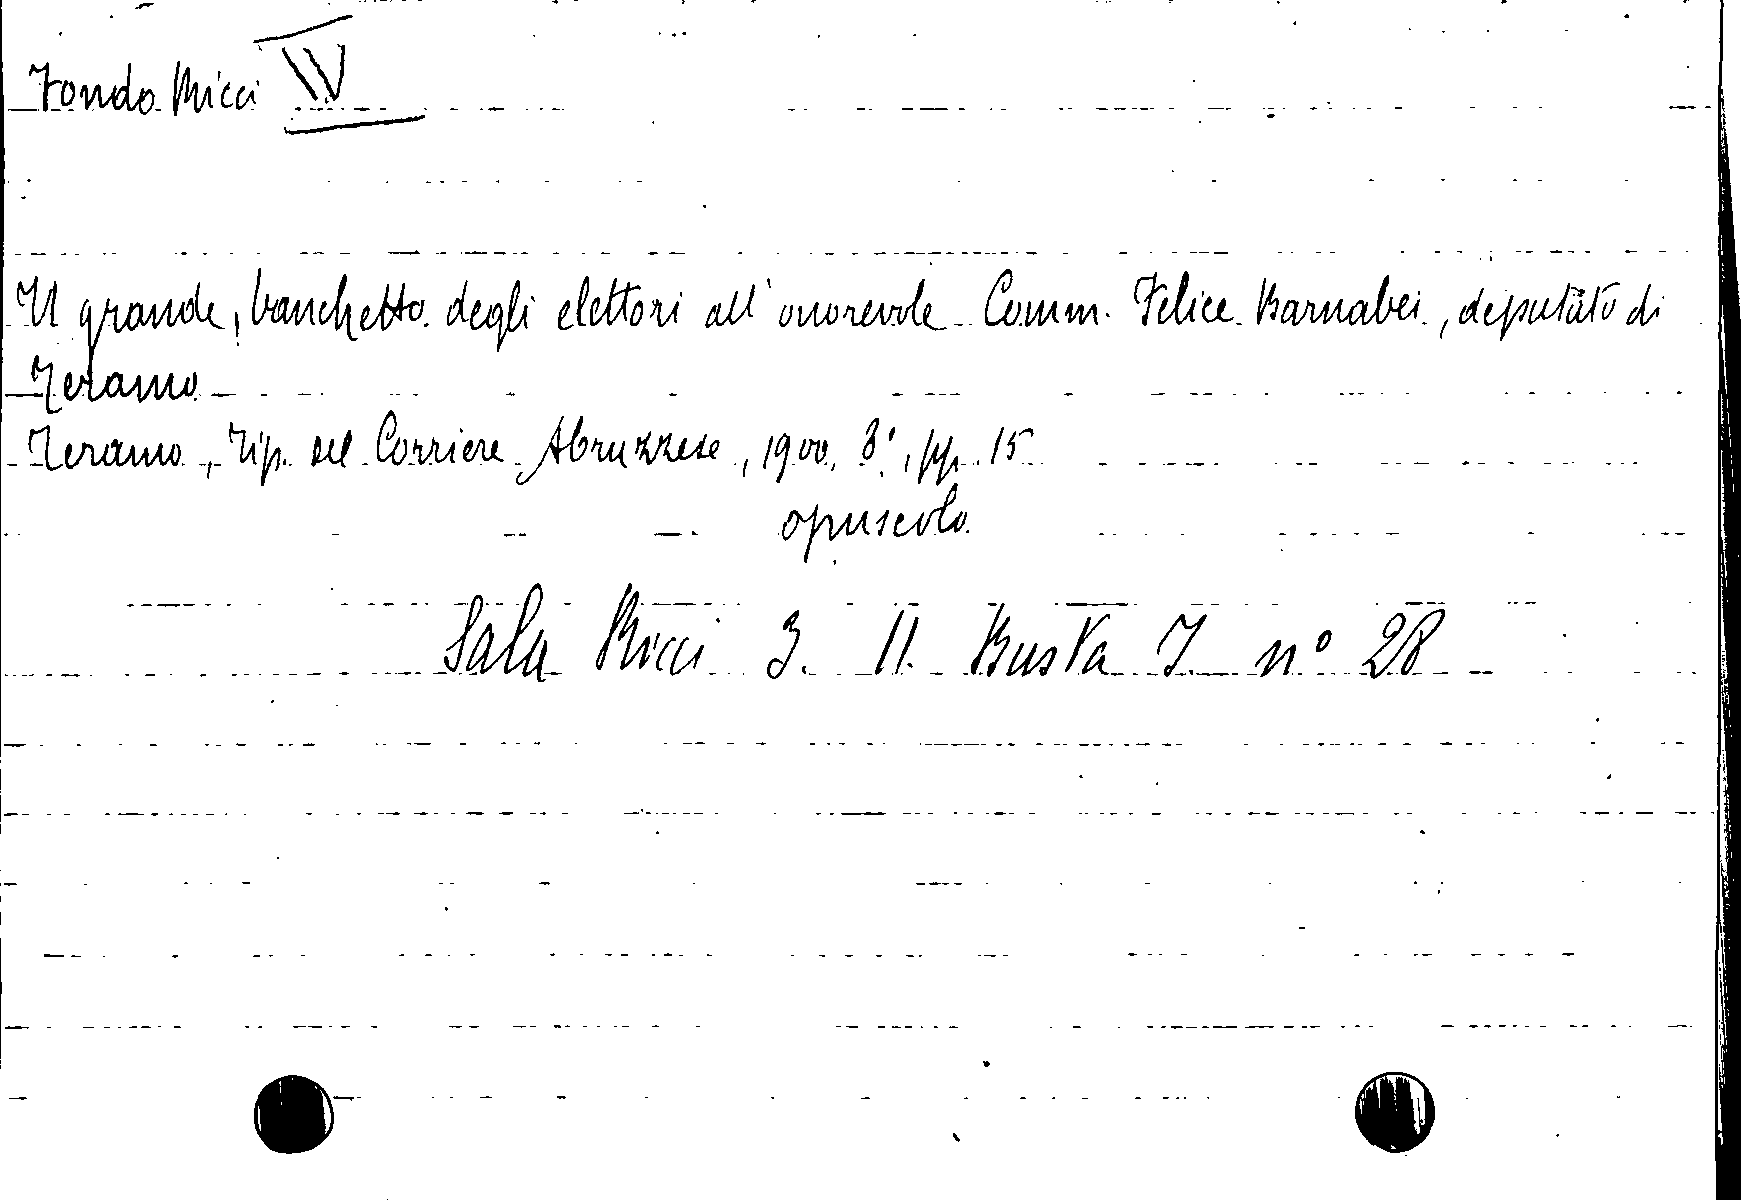 Fondo Ricci IV
Il grande, banchetto degli elettori all'onorevole Comm. Felice Barnabei, deputato di
Teramo
Teramo, Tip. del Corriere Abruzzese, 1900, 8°, pp. 15
opuscolo
Sala Ricci 3. 11. Busta I. n° 28